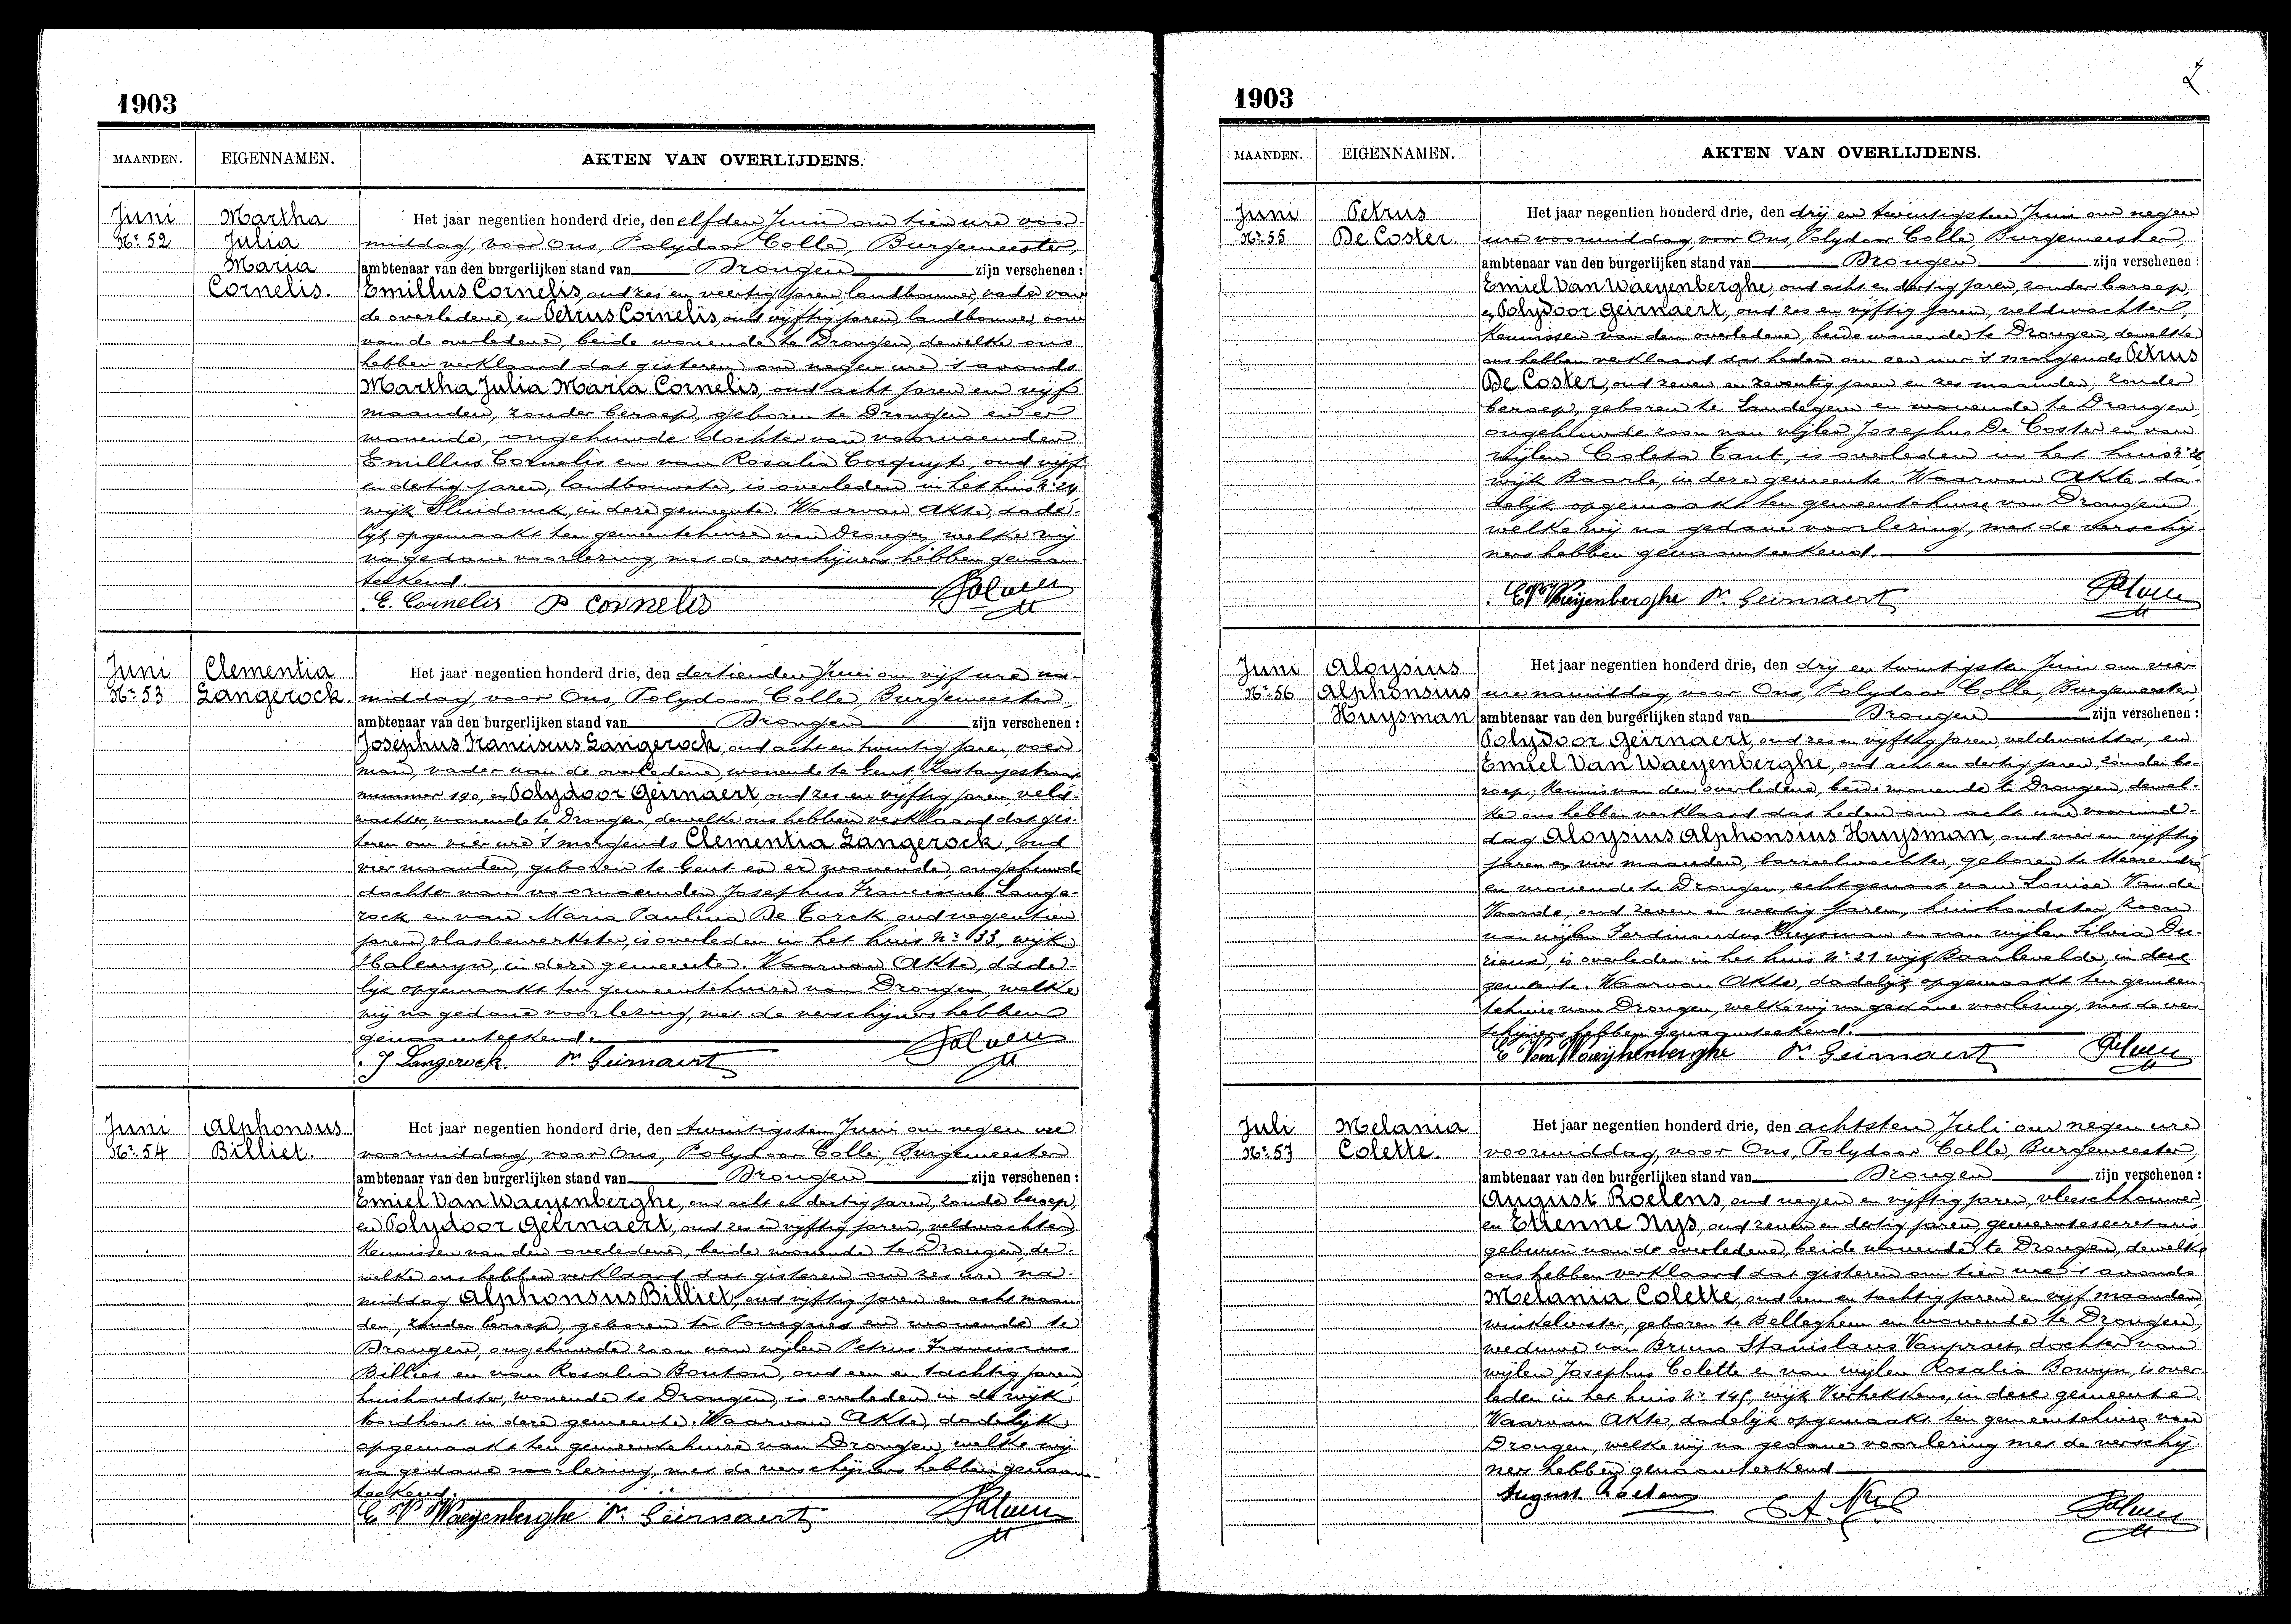 1903
MAANDEN. EIGENNAMEN. AKTEN VAN OVERLIJDENS.
Juni
Nr. 52
Martha
Julia
Maria
Cornelis.
Het jaar negentien honderd drie, den elfden Juni om tien ure voor-
middag, voor Ons, Polydoor Colle, Burgemeester,
ambtenaar van den burgerlijken stand van Drongen zijn verschenen:
Emillus Cornelis, oud zes en veertig jaren, landbouwer, vader van
de overledene, en Petrus Cornelis, oud vyftig jaren, landbouwer, oom
van de overledene, beide wonende te Drongen, dewelke ons
hebben verklaard dat gisteren om negen ure 's avonds
Martha Julia Maria Cornelis, oud acht jaren en vijf
maanden, zonder beroep, geboren te Drongen en er
wonende, ongehuwde dochter van voornoemden
Emillus Cornelis en van Rosalia Cocquyt, oud vijf
en dertig jaren, landbouwster, is overleden in het huis Nr. 24,
wijk Sluidonck, in deze gemeente. Waarvan Akte, dade-
lijk opgemaakt ten gemeentehuize van Drongen, welke wij
na gedane voorlezing, met de verschijners hebben genaam-
teekend.
E. Cornelis P. Cornelis
Juni
Nr. 53
Clementia
Langerock.
Het jaar negentien honderd drie, den dertienden Juni om vijf ure na-
middag, voor Ons, Polydoor Colle, Burgemeester,
ambtenaar van den burgerlijken stand van Drongen zijn verschenen:
Josephus Franciscus Langerock, oud acht en twintig jaren, voer-
man, vader van de overledene, wonende te Gent, Kastanjestraat
nummer 190, en Polydoor Geirnaert, oud zes en vyftig jaren, veld-
wachter, wonende te Drongen, dewelke ons hebben verklaard dat gis-
teren om vier ure 's morgends Clementia Langerock, oud
vier maanden, geboren te Gent en er wonende, ongehuwde
dochter van voornoemden Josephus Franciscus Lange-
rock en van Maria Paulina De Corck, oud negentien
jaren, vlasbewerkster, is overleden in het huis Nr. 133, wijk
Halewyn, in deze gemeente. Waarvan Akte, dade-
lijk opgemaakt ten gemeentehuize van Drongen, welke
wij na gedane voorlezing, met de verschijners hebben
genaamteekend.
J Langerock. Pr. Geirnaert
Juni
Nr. 54
Alphonsus
Billiet.
Het jaar negentien honderd drie, den twintigsten Juni om negen ure
voormiddag, voor Ons, Polydoor Colle, Burgemeester
ambtenaar van den burgerlijken stand van Drongen zijn verschenen:
Emiel Van Waeyenberghe, oud acht en dertig jaren, zonder beroep,
en Polydoor Geirnaert, oud zes en vyftig jaren, veldwachter,
kennissen van den overledene, beide wonende te Drongen, de-
welke ons hebben verklaard dat gisteren om zes ure na-
middag Alphonsus Billiet, oud vyftig jaren en acht maan-
den, zonder beroep, geboren te Poucques en wonende te
Drongen, ongehuwde zoon van wijlen Petrus Franciscus
Billiet en van Rosalia Bouton, oud een en tachtig jaren
huishoudster, wonende te Drongen, is overleden in de wijk
Noordhout in deze gemeente. Waarvan Akte, dadelijk
opgemaakt ten gemeentehuize van Drongen, welke wij
na gedane voorlezing, met de verschijners hebben genaam-
teekend.
E. V. Waeyenberghe Pr. Geirnaert
1903
MAANDEN. EIGENNAMEN. AKTEN VAN OVERLIJDENS.
Juni
Nr. 55
Petrus
De Coster.
Het jaar negentien honderd drie, den drij en twintigsten Juni om negen
ure voormiddag, voor Ons, Polydoor Colle, Burgemeester,
ambtenaar van den burgerlijken stand van Drongen zijn verschenen:
Emiel Van Waeyenberghe, oud acht en dertig jaren, zonder beroep
en Polydoor Geirnaert, oud zes en vyftig jaren, veldwachter,
kennissen van den overledene, beide wonende te Drongen, dewelke
ons hebben verklaard dat heden om een uur 's morgends Petrus
De Coster, oud zeven en zeventig jaren en zes maanden, zonder
beroep, geboren te Landegem en wonende te Drongen,
ongehuwde zoon van wijlen Josephus De Coster en van
wijlen Coleta Cant, is overleden in het huis
wijk Baarle, in deze gemeente. Waarvan Akte, da-
delijk opgemaakt ten gemeentehuize van Drongen
welke wij na gedane voorlezing, met de verschij-
ners hebben genaamteekend.
E. V. Waeyenberghe Pr. Geirnaert
Juni
Nr. 56
Aloysius
Alphonsius
Huysman
Het jaar negentien honderd drie, den drij en twintigsten Juni om vier
ure namiddag, voor Ons, Polydoor Colle, Burgemeester,
ambtenaar van den burgerlijken stand van Drongen zijn verschenen:
Polydoor Geirnaert, oud zes en vyftig jaren, veldwachter, en
Emiel Van Waeyenberghe, oud acht en dertig jaren, zonder be-
roep, kennis van den overledene, beide wonende te Drongen, dewel-
ke ons hebben verklaard dat heden om acht ure voormid-
dag Aloysius Alphonsius Huysman, oud vier en vyftig
jaren en vier maanden, barreelwachter, geboren te Meerendre
en wonende te Drongen, echtgenoot van Louise Van de
Voorde, oud zeven en veertig jaren, huishoudster, zoon
van wijlen Ferdinandus Huysman en van wijlen Silvia De-
rieux, is overleden in het huis Nr. 21 wijk Baarlevelde, in deze
gemeente. Waarvan Akte, dadelijk opgemaakt ten gemeen-
tehuize van Drongen, welke wij na gedane voorlezing, met de ver-
schijners hebben genaamteekend.
E Van Waeyhenberghe Pr. Geirnaert
Juli
Nr. 57
Melania
Colette.
Het jaar negentien honderd drie, den achtsten Juli om negen ure
voormiddag, voor Ons, Polydoor Colle, Burgemeester,
ambtenaar van den burgerlijken stand van Drongen zijn verschenen:
August Roelens, oud negen en vyftig jaren, vleeschhouwer,
en Etienne Nys, oud zeven en dertig jaren, gemeentesecretaris
geburen van de overledene, beide wonende te Drongen, dewelke
ons hebben verklaard dat gisteren om tien ure 's avonds
Melania Colette, oud een en tachtig jaren en vijf maanden,
winkelierster, geboren te Belleghem en wonende te Drongen,
weduwe van Bruno Stanislaus Vanpraet, dochter van
wijlen Josephus Colette en van wijlen Rosalia Bowyn, is over-
leden in het huis Nr. 145, wijk Vierhekkens, in deze gemeente.
Waarvan Akte, dadelijk opgemaakt ten gemeentehuize van
Drongen, welke wij na gedane voorlezing met de verschij-
ners hebben genaamteekend
August Roelens